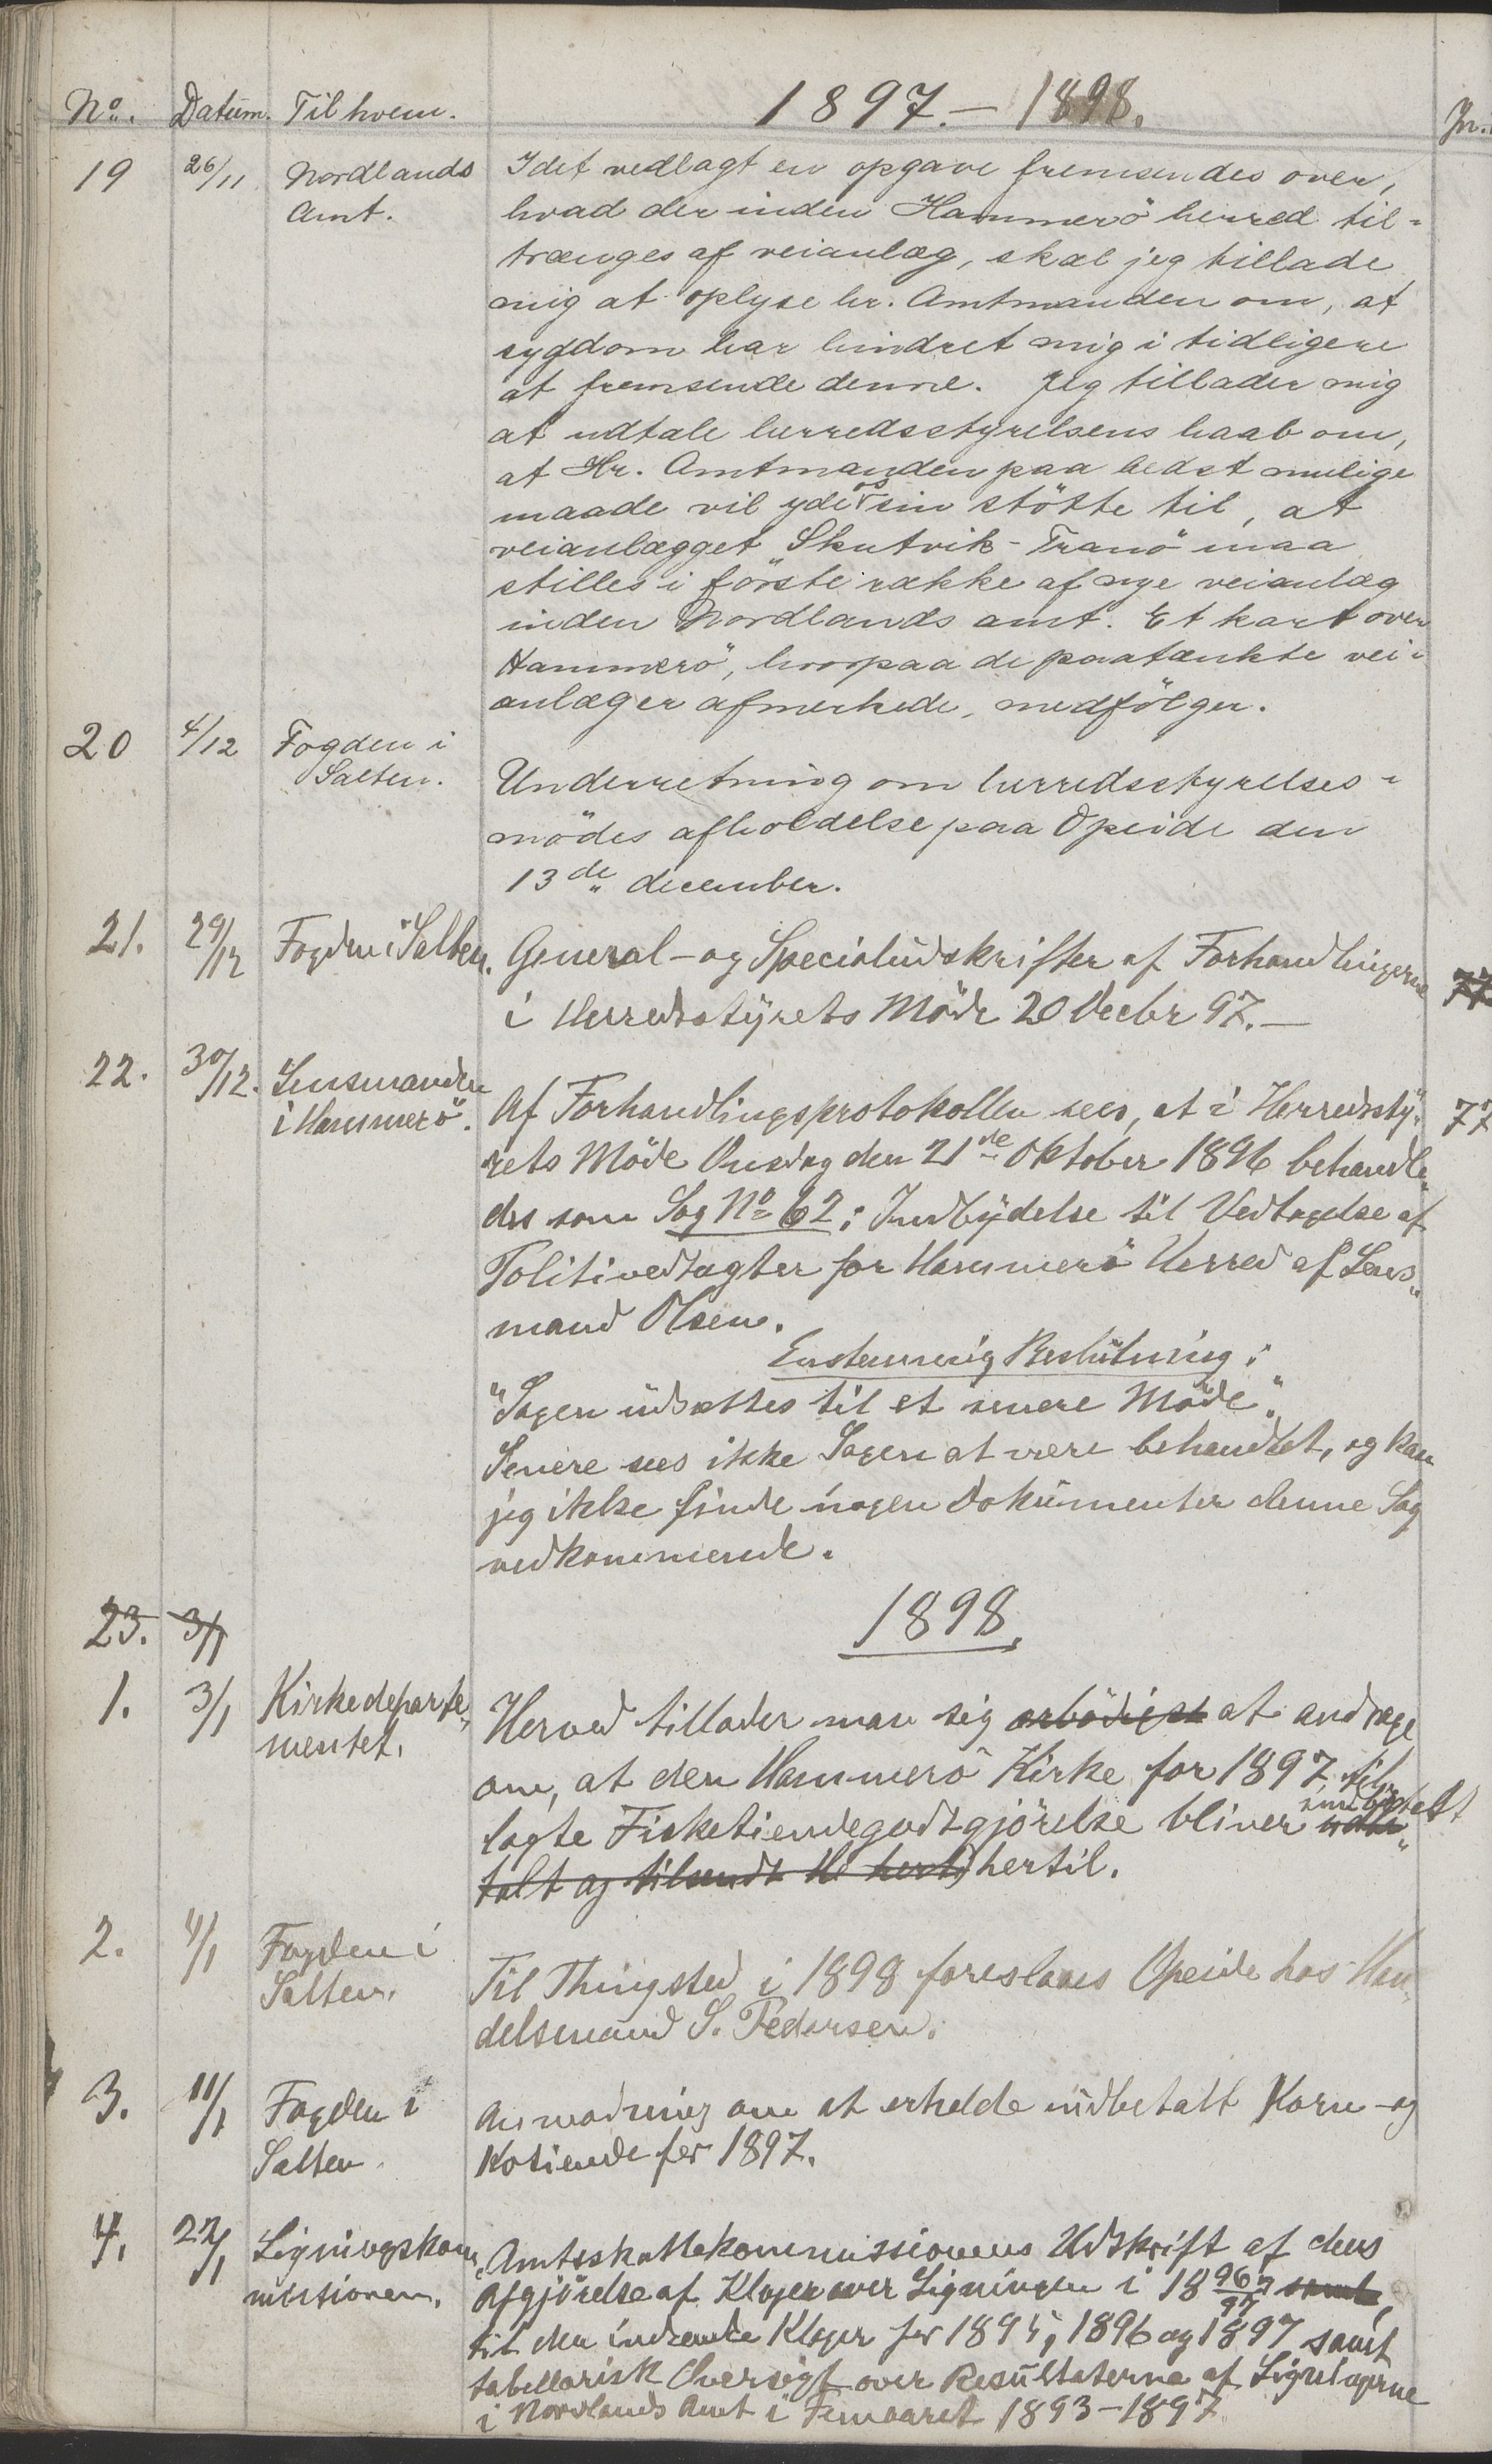 No. Datum. Til hvem. 1897.-1898. Jn.
19 26/11 Nordlands Amt. Idet vedlagt en opgave fremsendes over,
hvad der inden Hammerö herred til-
trænges af veianlæg, skal jeg tillade
mig at oplyse hr. Amtmanden om, at
sygdom har hindret mig i tidligere
at fremsende denne. Jeg tillader mig
at udtale herredsstyrelsens haab om,
at Hr. Amtmanden paa bedst mulige
maade vil yde os sin stötte til, at
veianlægget "Skutvik-Tranö" maa
stilles i förste række af nye veianlæg
inden Nordlands amt. Et kart over
Hammerö, hvorpaa de paatænkte vei-
anlæg er afmerkede, medfölger.
20 4/12 Fogden i Salten. Underretning om herredsstyrelses-
mödes afholdelse paa Opeide den
13de december.
21. 29/12 Fogden i Salten. General- og Specialudskrifter af Forhandlingerne 77
i Herredsstyrets Möde 20 Decbr 97.-
22. 30/12. Lensmanden i Hammerö. Af Forhandlingsprotokollen sees, at i Herredssty- 77
rets Möde Onsdag den 21de Oktober 1896 behandle-
des som Sag No 62: Indbydelse til Vedtagelse af
Politivedtægter for Hammerö Herred af Lens-
mand Olsen.
Enstemmig Beslutning:
"Sagen udsættes til et senere Möde".
Senere sees ikke Sagen at være behandlet, og kan
jeg ikke finde nogen Dokumenter denne Sag
vedkommende.
23. 3/1 1898.
1. 3/1 Kirkedeparte-
mentet. Herved tillader man sig ærbödigst at andrage
om, at den Hammerö Kirke for 1897 til-
lagte Fisketiendegodtgjörelse bliver udbe- indbetalt
talt og tilsendt hertil.
2. 4/1 Fogden i Salten. Til Thingsted i 1898 foreslaaes Opeide hos Han-
delsmand S. Pedersen.
3. 11/1 Fogden i Salten. Anmodning om at erholde udbetalt Korn- og
Kotiende for 1897.
4. 22/1 Ligningskom-
missionen. Amtsskattekommissionens Udskrift af dens
Afgjörelse af Klager over Ligningen i 1896/97 samt,
til den indsendte Klager for 1895, 1896 og 1897 samt
tabellarisk Oversigt over Resultaterne af Ligningerne
i Nordlands Amt i Femaaret 1893-1897